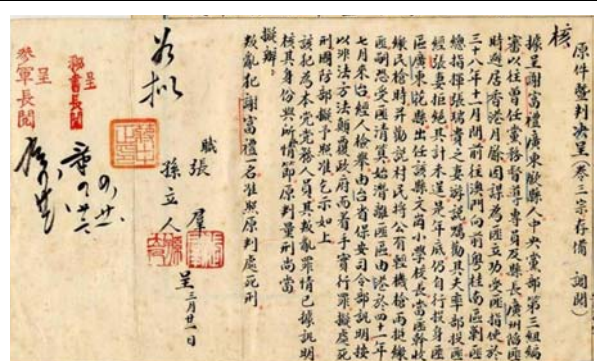 原件暨判決呈(卷三宗存備 調閱)
核
據呈謝富禮廣東縣人中央黨部第三組編
審以往曾任黨務督導專員及縣長廣州陷匪
時避居香港月餘因謀為匪立功受匪指使於
三十八年十一月間前往澳門向前粵桂南區剿匪
總指揮張瑞貴之妻游說囑勸其夫率部投匪
經張妻拒絕其計未逞是年底仍自行投身匪
區廣東花縣出任該縣文岡小學校長當匪幹收
繳民槍時并勸說村民將公有輕機槍兩挺繳
匪嗣恐受匪清算始潛離匪區由港於四十一年
七月來台經人檢舉由台省保安司令部訊明按
以非法方法顛覆政府而着手實行罪擬處死
刑國防部擬予照准乞示如上
該犯為本党党務人員其叛亂罪情已據訊明
核其身份與所情節原判量刑尚當
擬辦:
叛亂犯謝富禮一名准照原判處死刑
職張 羣
孫立人
呈三月廿一日
如拟
呈
秘書長閱
呈
參軍長閱